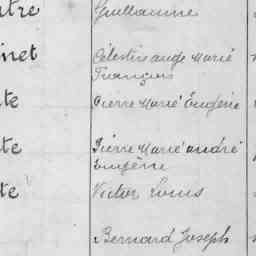 Guillaume
Célestin ange Marie
François
Pierre Marie Eugène
Pierre Marie andré
Eugène
Victor Louis
Bernard Joseph